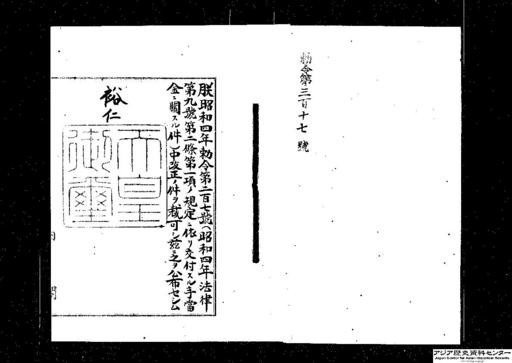 勅令第三百十七號
朕昭和四年勅令第二百七號(昭和四年法律
第九號第二條第一項ノ規定ニ依リ交付スル手當
金ニ關スル件)中改正ノ件ヲ裁可シ茲ニ之ヲ公布セシム
裕仁
天皇
御璽
内閣
アジア歴史資料センター
Japan Center for Asian Historical Records